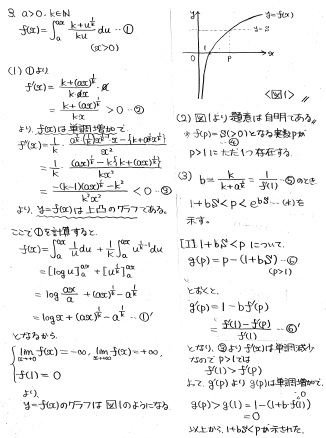 3. a>0, k∈N
f(x)=∫_a^{ax} (k+u^{1/k})/(ku) du …①
(x>0)
(1) ①より
f'(x)= (k+(ax)^{1/k})/(k·ax) ·a
= (k+(ax)^{1/k})/(k·x) >0 …②
より、f(x)は単調増加で、
= (-(k-1)(ax)^{1/k}-k²)/(k²x²) <0 …③
より、y=f(x)は上凸のグラフである。
ここで①を計算すると、
f(x)=∫_a^{ax} 1/u du + 1/k ∫_a^{ax} u^{1/k-1} du
=[log u]_a^{ax}+[u^{1/k}]_a^{ax}
=log ax/a +(ax)^{1/k}-a^{1/k}
=log x+(ax)^{1/k}-a^{1/k} …①'
となるから、
lim_{x→+0} f(x)=-∞, lim_{x→+∞} f(x)=+∞,
f(1)=0
より、
y=f(x)のグラフは図1のようになる。
y
y=f(x)
y=S
1
P
x
<図1>
(2) 図1より題意は自明である。
※ f(p)=S(>0)となる実数pが
…④
p>1にただ1つ存在する。
(3) b= k/(k+a^{1/k}) = 1/f'(1) …⑤のとき
1+bS<p<e^{bS} …(*)を
示す。
[I] 1+bS<pについて、
g(p)=p-(1+bS) …⑥
(p>1)
とおくと、
g'(p)=1-bf'(p)
= (f'(1)-f'(p))/f'(1) …⑥'
となり、③よりf'(x)は単調減少
なのでp>1では
f'(1)>f'(p)
よって、g'(p)よりg(p)は単調増加で、
g(p)>g(1)=1-(1+b·f(1))
0
=0
以上から、1+bS<pが示された。